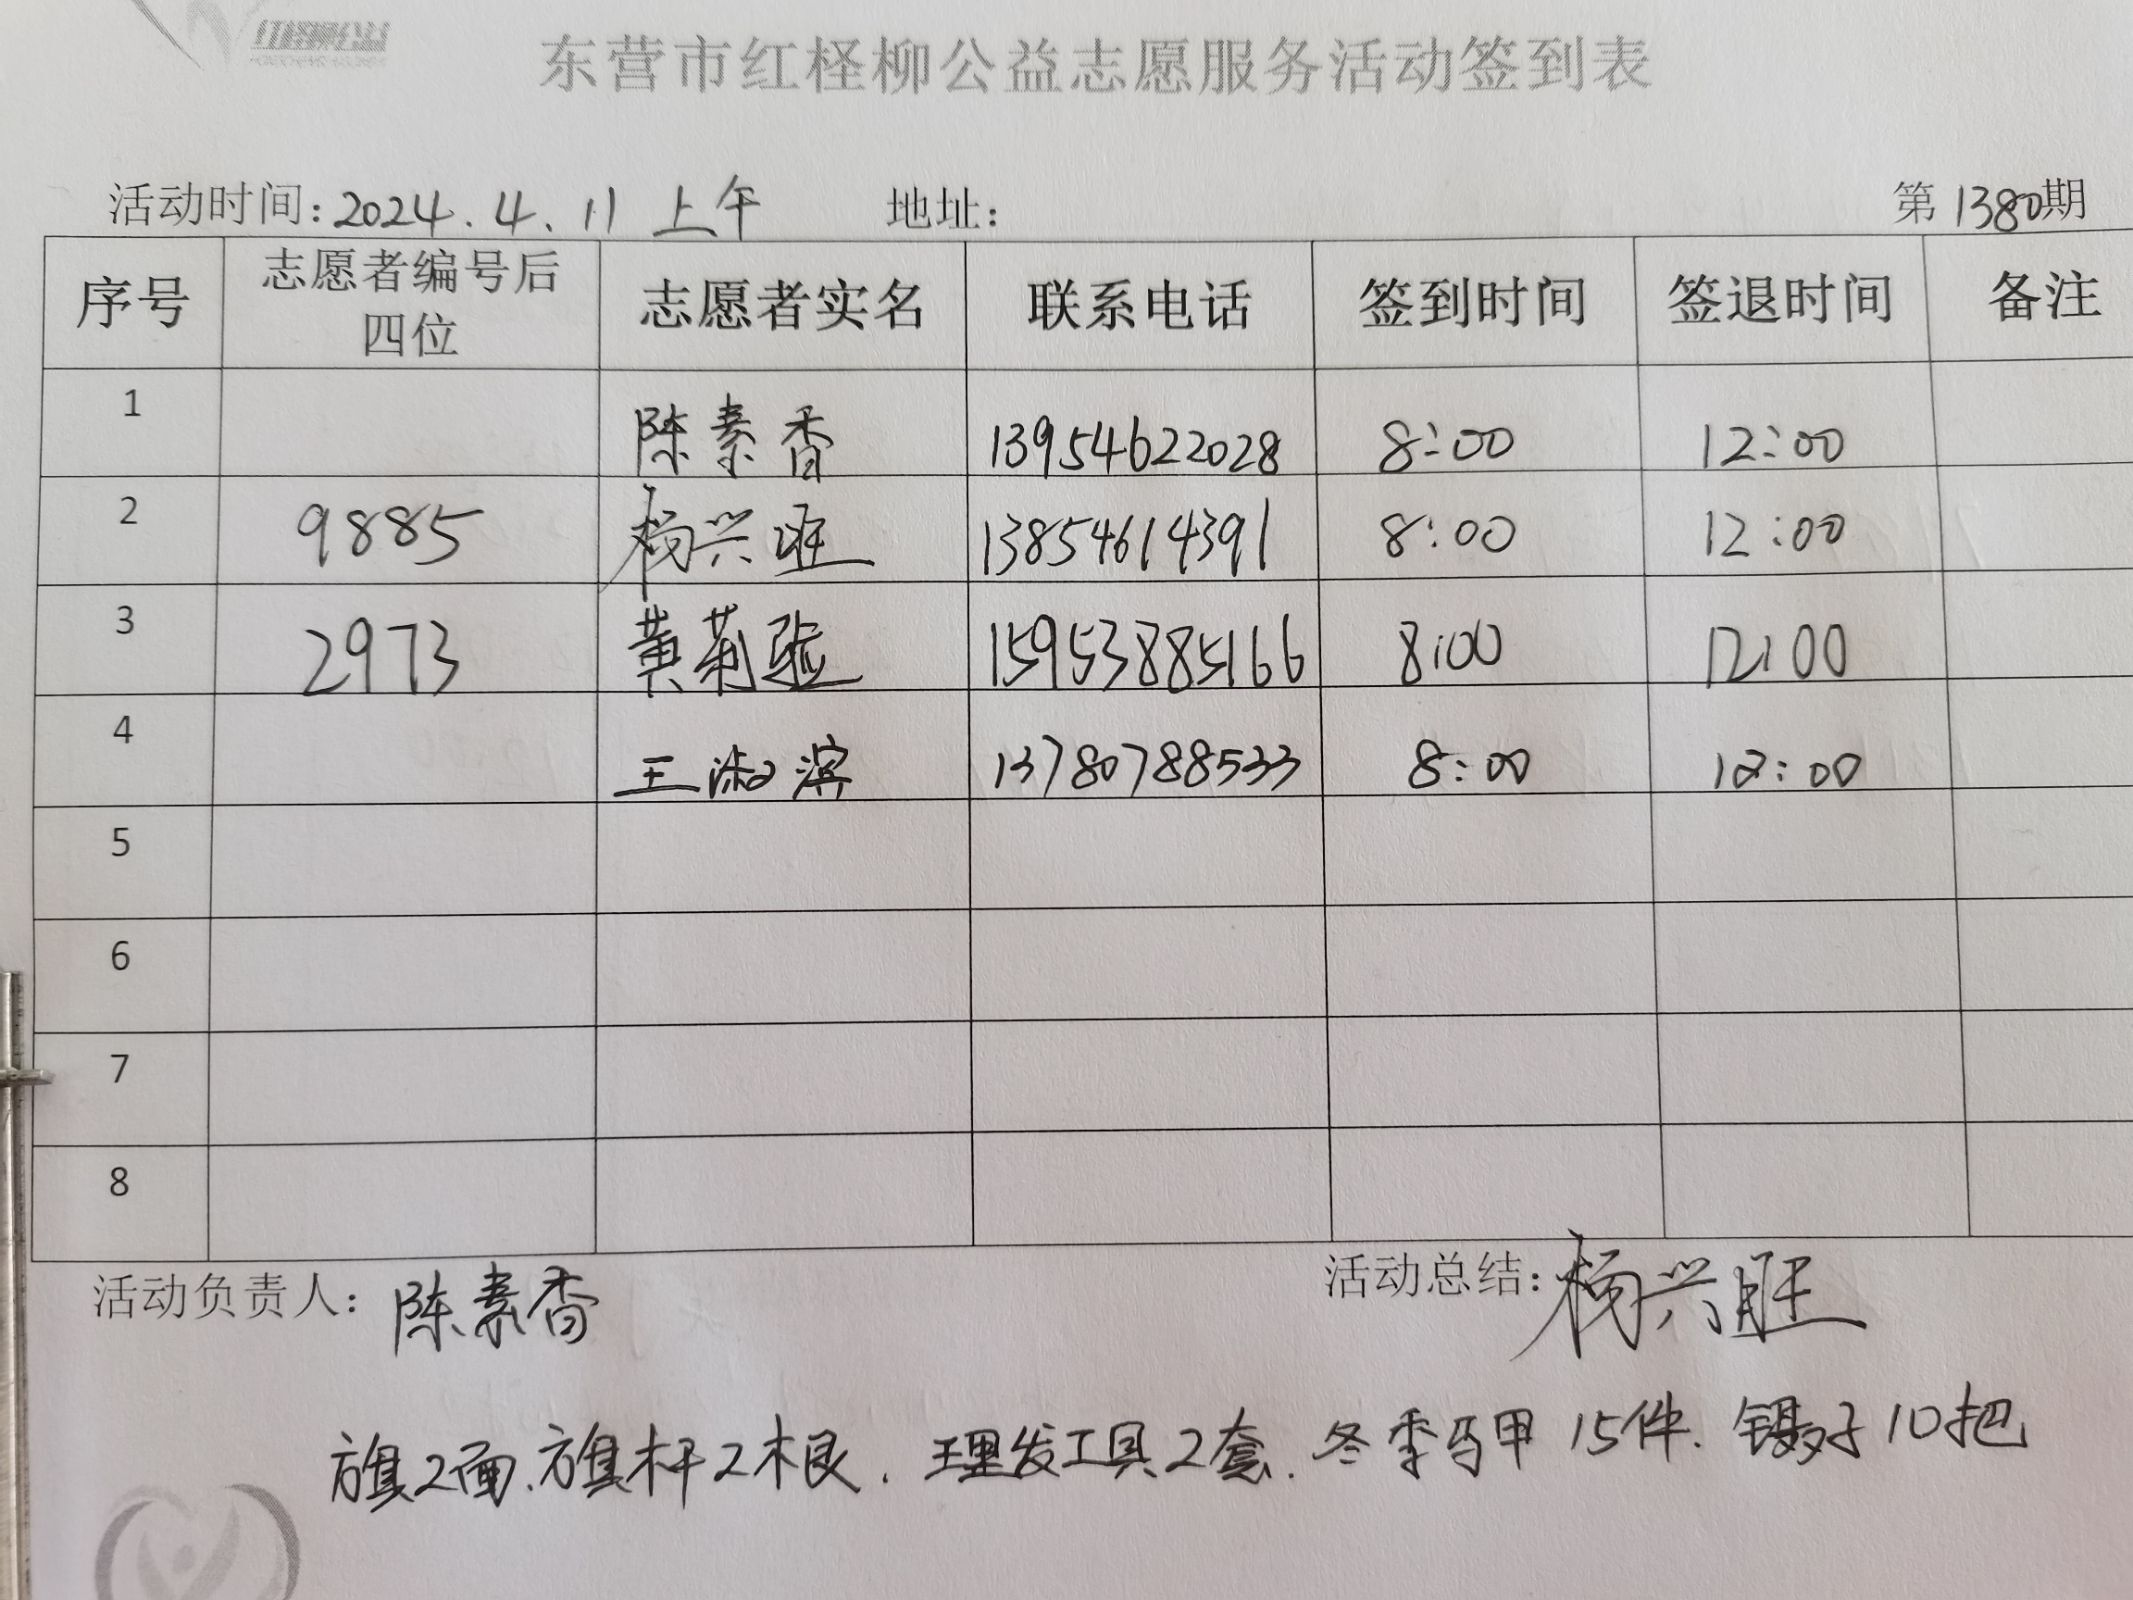 红柽柳公益
东营市红柽柳公益志愿服务活动签到表
活动时间: 2024.4.11 上午 地址: 第1380期
序号 志愿者编号后四位 志愿者实名 联系电话 签到时间 签退时间 备注
1 陈素香 13954622028 8:00 12:00
2 9885 杨兴旺 13854614391 8:00 12:00
3 2973 黄菊 15953885166 8:00 12:00
4 王淑滨 13780788533 8:00 12:00
5
6
7
8
活动负责人: 陈素香 活动总结: 杨兴旺
旗2面、旗杆2根、理发工具2套、冬季马甲15件、镊子10把